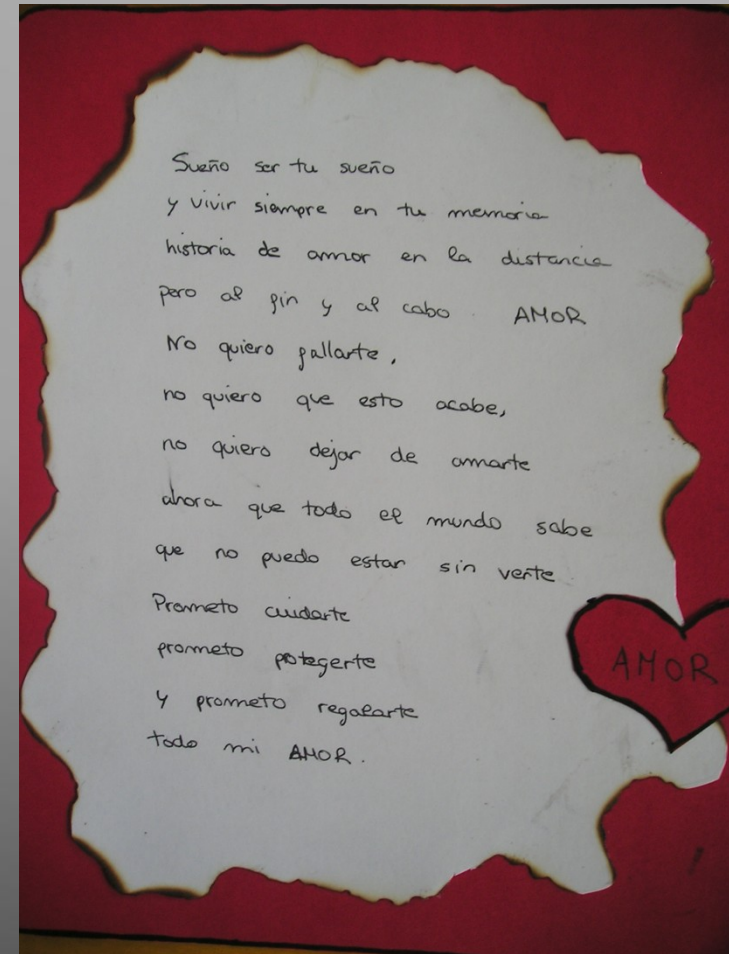 Sueño ser tu sueño
y vivir siempre en tu memoria
historia de amor en la distancia
pero al fin y al cabo AMOR
No quiero fallarte,
no quiero que esto acabe,
no quiero dejar de amarte
ahora que todo el mundo sabe
que no puedo estar sin verte
Prometo cuidarte
prometo protegerte
y prometo regalarte
todo mi AMOR.
AMOR